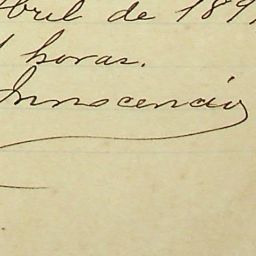 Abril de 189
horas.
Innocencio